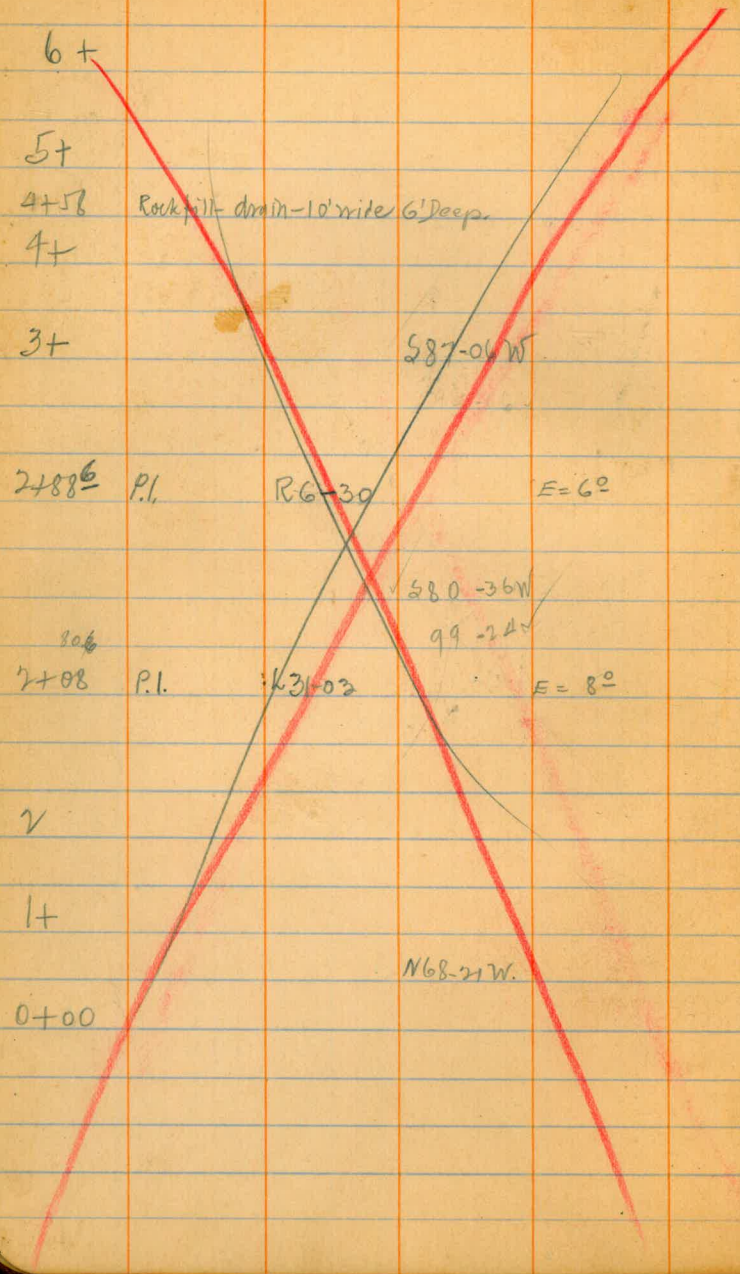 6+
5+
4+58 Rockfill-drain-10'wide 6'Deep.
4+
3+ S87-06W
2+88⁶ P.I. R6-30 E=6º
S80-36W
80.6 99-24
2+08 P.I. L31-03 E= 8º
2
1+
N68-21W.
0+00